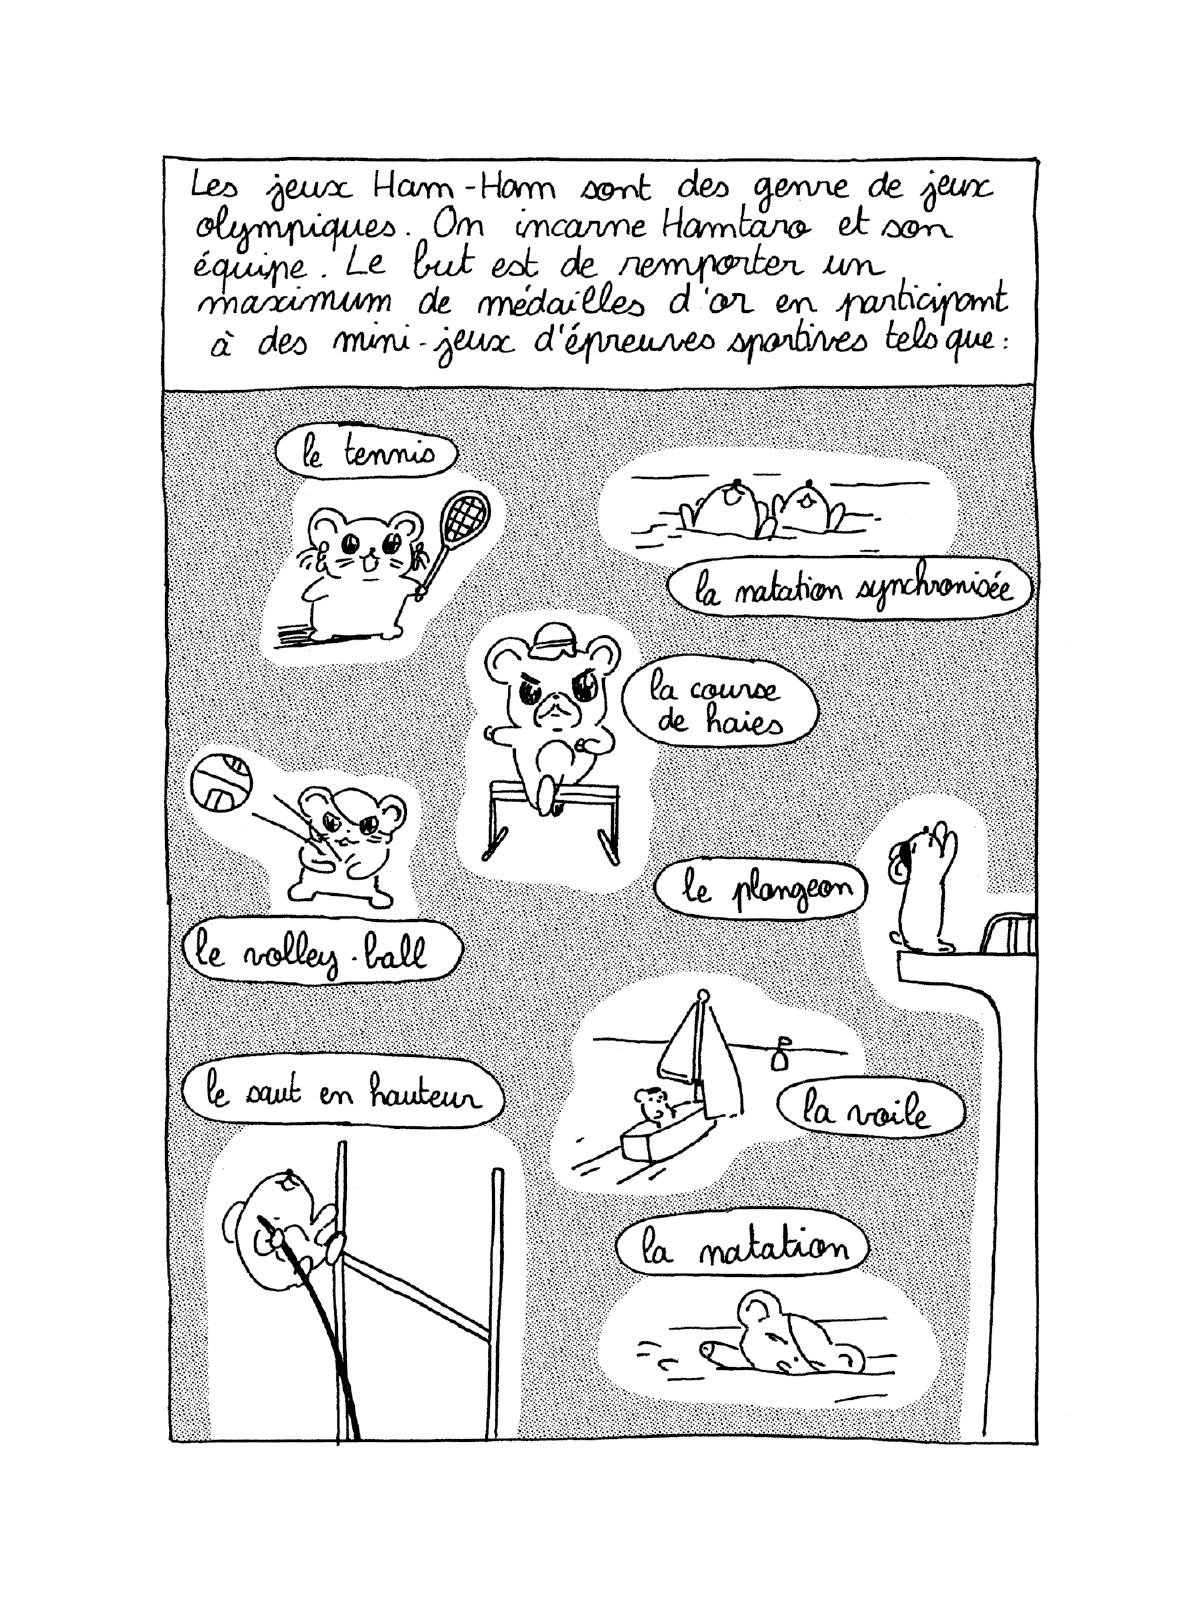 Les jeux Ham-Ham sont des genre de jeux
olympiques. On incarne Hamtaro et son
équipe. Le but est de remporter un
maximum de médailles d'or en participant
à des mini-jeux d'épreuves sportives tels que :
le tennis
la natation synchronisée
la course
de haies
le plongeon
le volley-ball
le saut en hauteur
la voile
la natation